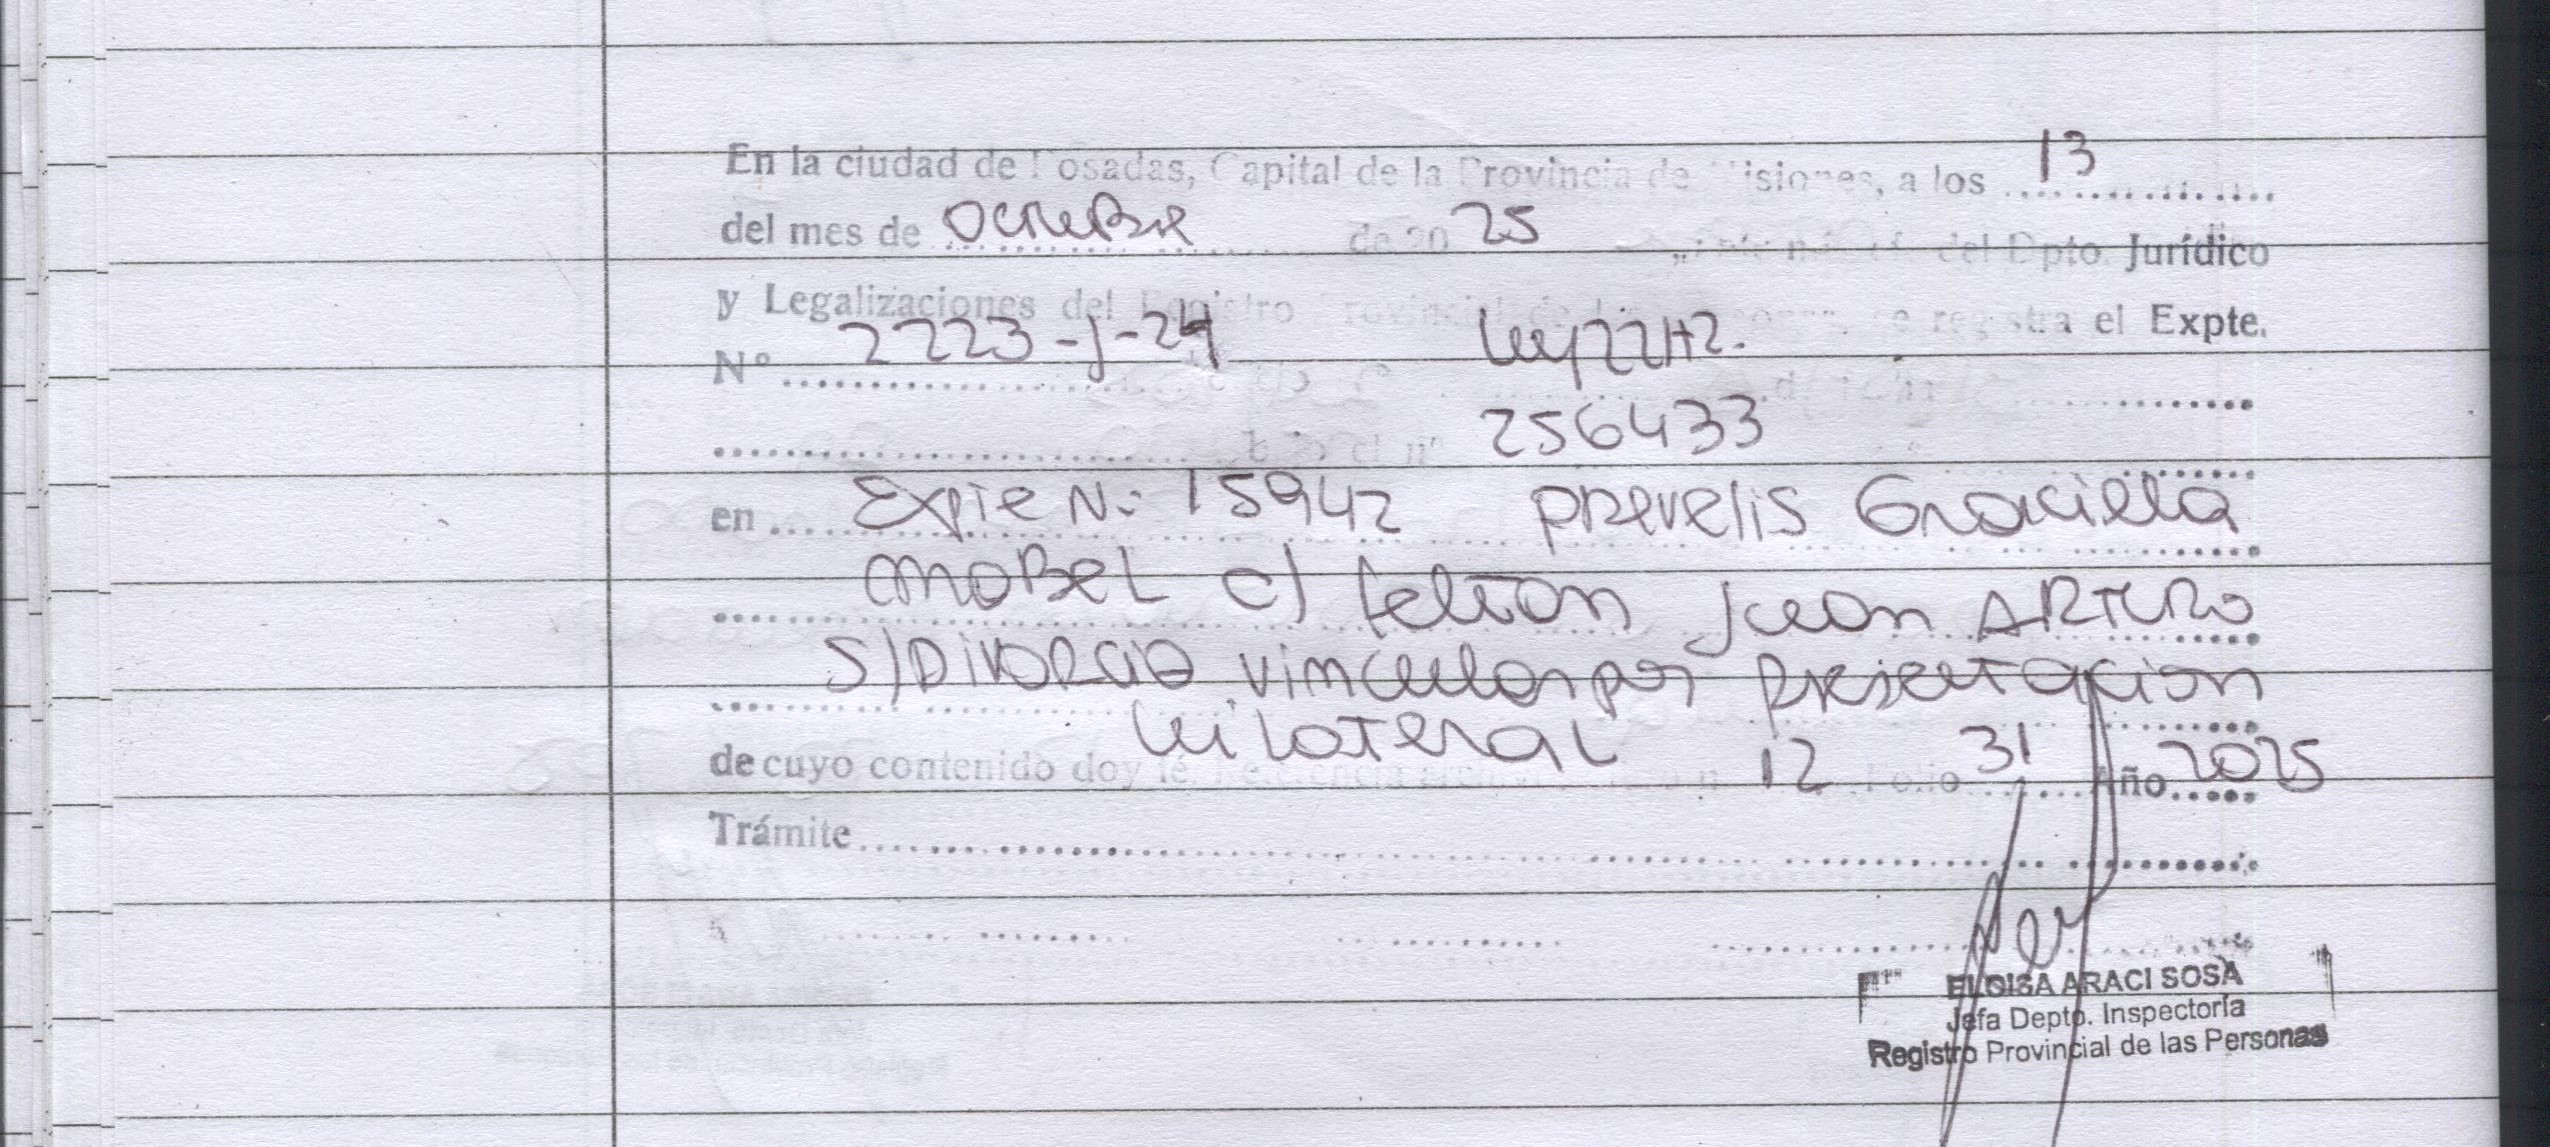 En la ciudad de Posadas, Capital de la Provincia de Misiones, a los 13
del mes de Octubre de 20 25 del Dpto. Jurídico
y Legalizaciones del Registro Provincial de las Personas, se registra el Expte.
Nº 2223-J-24 Ley 22172.
bajo el nº 256433
en Expte N: 15942 Prevelis Graciela
Mabel c/ Juan Arturo
S/Divorcio vincular por Presentacion
unilateral
de cuyo contenido doy fé. Referencia 12 Folio 31 Año 2025
Trámite
ELOISA ARACI SOSA
Jefa Depto. Inspectoría
Registro Provincial de las Personas